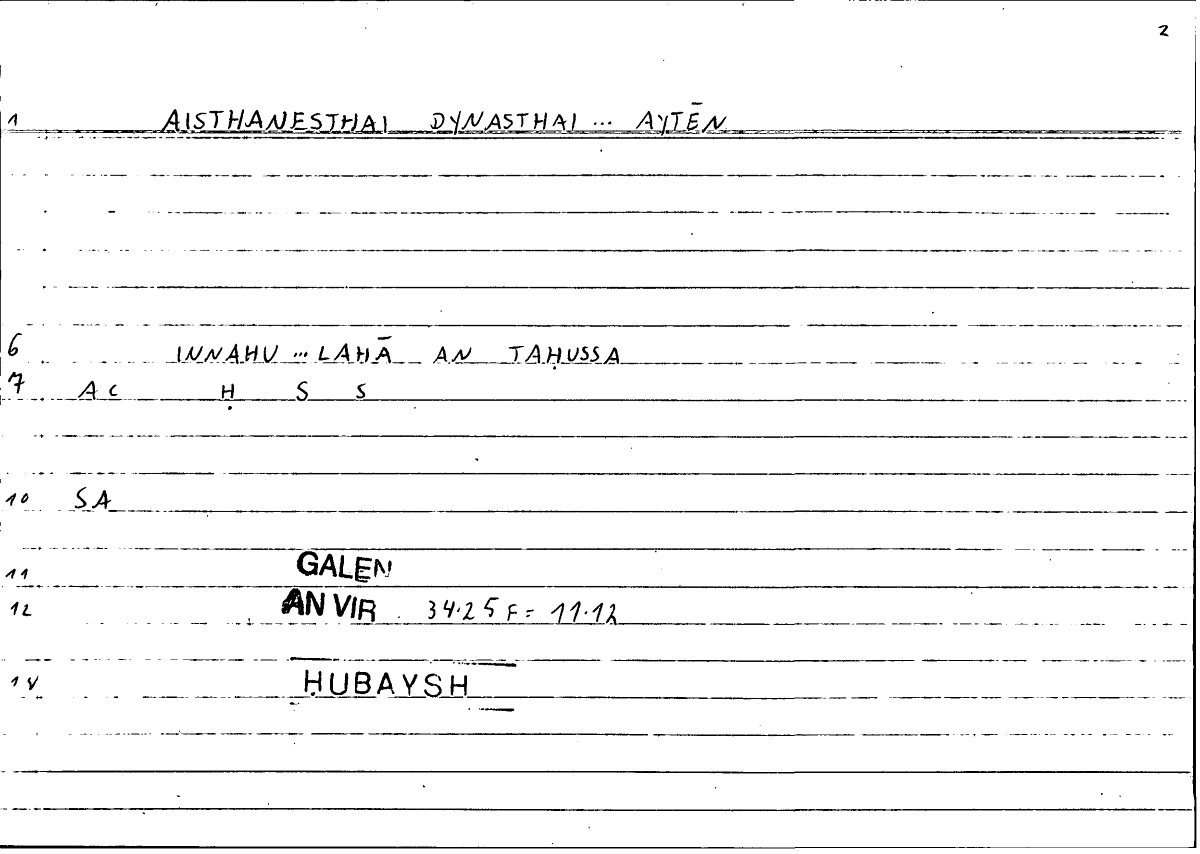 2
1 AISTHANESTHAI DYNASTHAI ... AYTĒN
6 INNAHU ... LAHĀ AN TAḤUSSA
7 AC Ḥ S S
10 SA
11 GALEN
12 AN VIR 34.25 F = 11.12
14 ḤUBAYSH